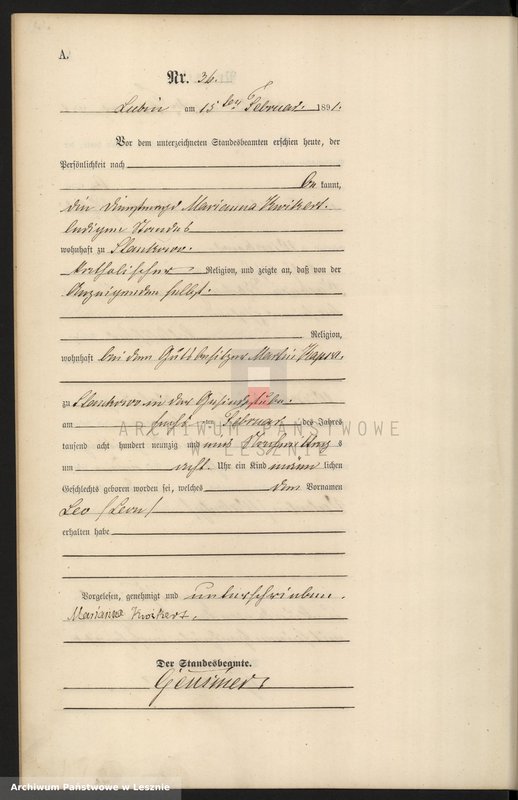 A.
Nr. 36.
Lubin am 15ten Februar 1891.
Vor dem unterzeichneten Standesbeamten erschien heute, der
Persönlichkeit nach
be kannt,
die Dienstmagd Marianna Kwikert.
ledigen Standes
wohnhaft zu Stankowo.
katholischer Religion, und zeigte an, daß von der
Anzeigenden selbst.
Religion,
wohnhaft bei dem Gutsbesitzer Martin
zu Stankowo in der Gesindestube.
am ten Februar des Jahres
tausend acht hundert neunzig und eins s
um acht Uhr ein Kind männ lichen
Geschlechts geboren worden sei, welches den Vornamen
Leo /Leon/
erhalten habe
Vorgelesen, genehmigt und unterschrieben.
Marianna Kwikert.
Der Standesbeamte.
ARCHIWUM PAŃSTWOWE
W LESZNIE
Archiwum Państwowe w Lesznie